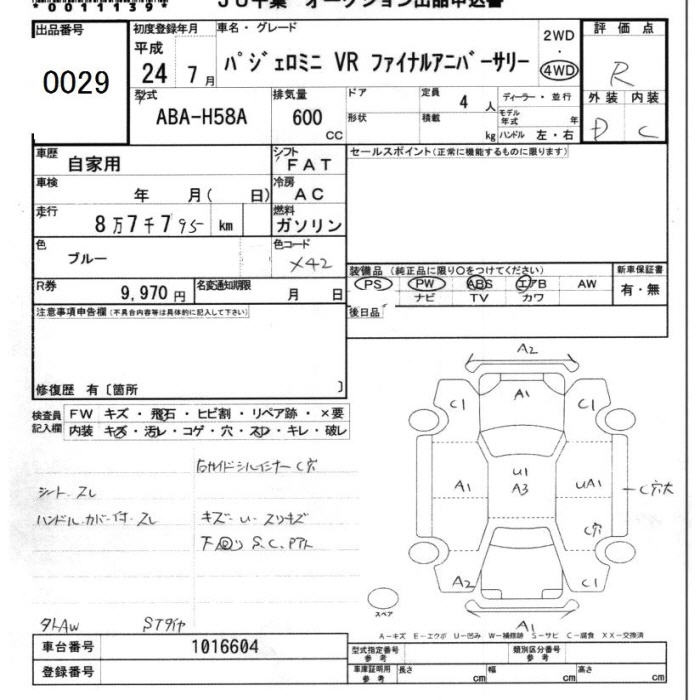 0011139
JU千葉 オークション出品申込書
出品番号 初度登録年月 車名・グレード 2WD ・ 4WD 評価点
0029 平成 24年 7月 パジェロミニ VR ファイナルアニバーサリー R
型式 排気量 ドア 定員 4人 ディーラー・並行 外装 内装
ABA-H58A 600 CC 形状 積載 kg モデル年式 年 ハンドル 左・右 D C
車歴 自家用 シフト FAT セールスポイント(正常に機能するものに限ります)
車検 年 月( 日) 冷房 AC
走行 8万7千795 km 燃料 ガソリン
色 ブルー 色コード X42
装備品 (純正品に限り○をつけてください) 新車保証書
PS PW ABS エアB AW 有・無
ナビ TV カワ
R券 9,970円 名変通知期限 月 日
後日品
注意事項申告欄(不具合内容等は具体的に記入して下さい)
修復歴 有〔箇所 〕
検査員記入欄 FW キズ・飛石・ヒビ割・リペア跡・×要
内装 キズ・汚レ・コゲ・穴・スレ・キレ・破レ
右サイドシルインナー C穴
シート スレ
ハンドルカバー付 スレ キズ・U・スリキズ
下回り S.C.
タトAW STタイヤ
A2
C1 A1 C1
A1 U1 A3 UA1 C穴大
C穴
A2 C1
A1
スペア
A-キズ E-エクボ U-凹み W-補修跡 S-サビ C-腐食 XX-交換済
車台番号 1016604 型式指定番号 参考 類別区分番号 参考
登録番号 車庫証明用 参考 長さ cm 幅 cm 高さ cm